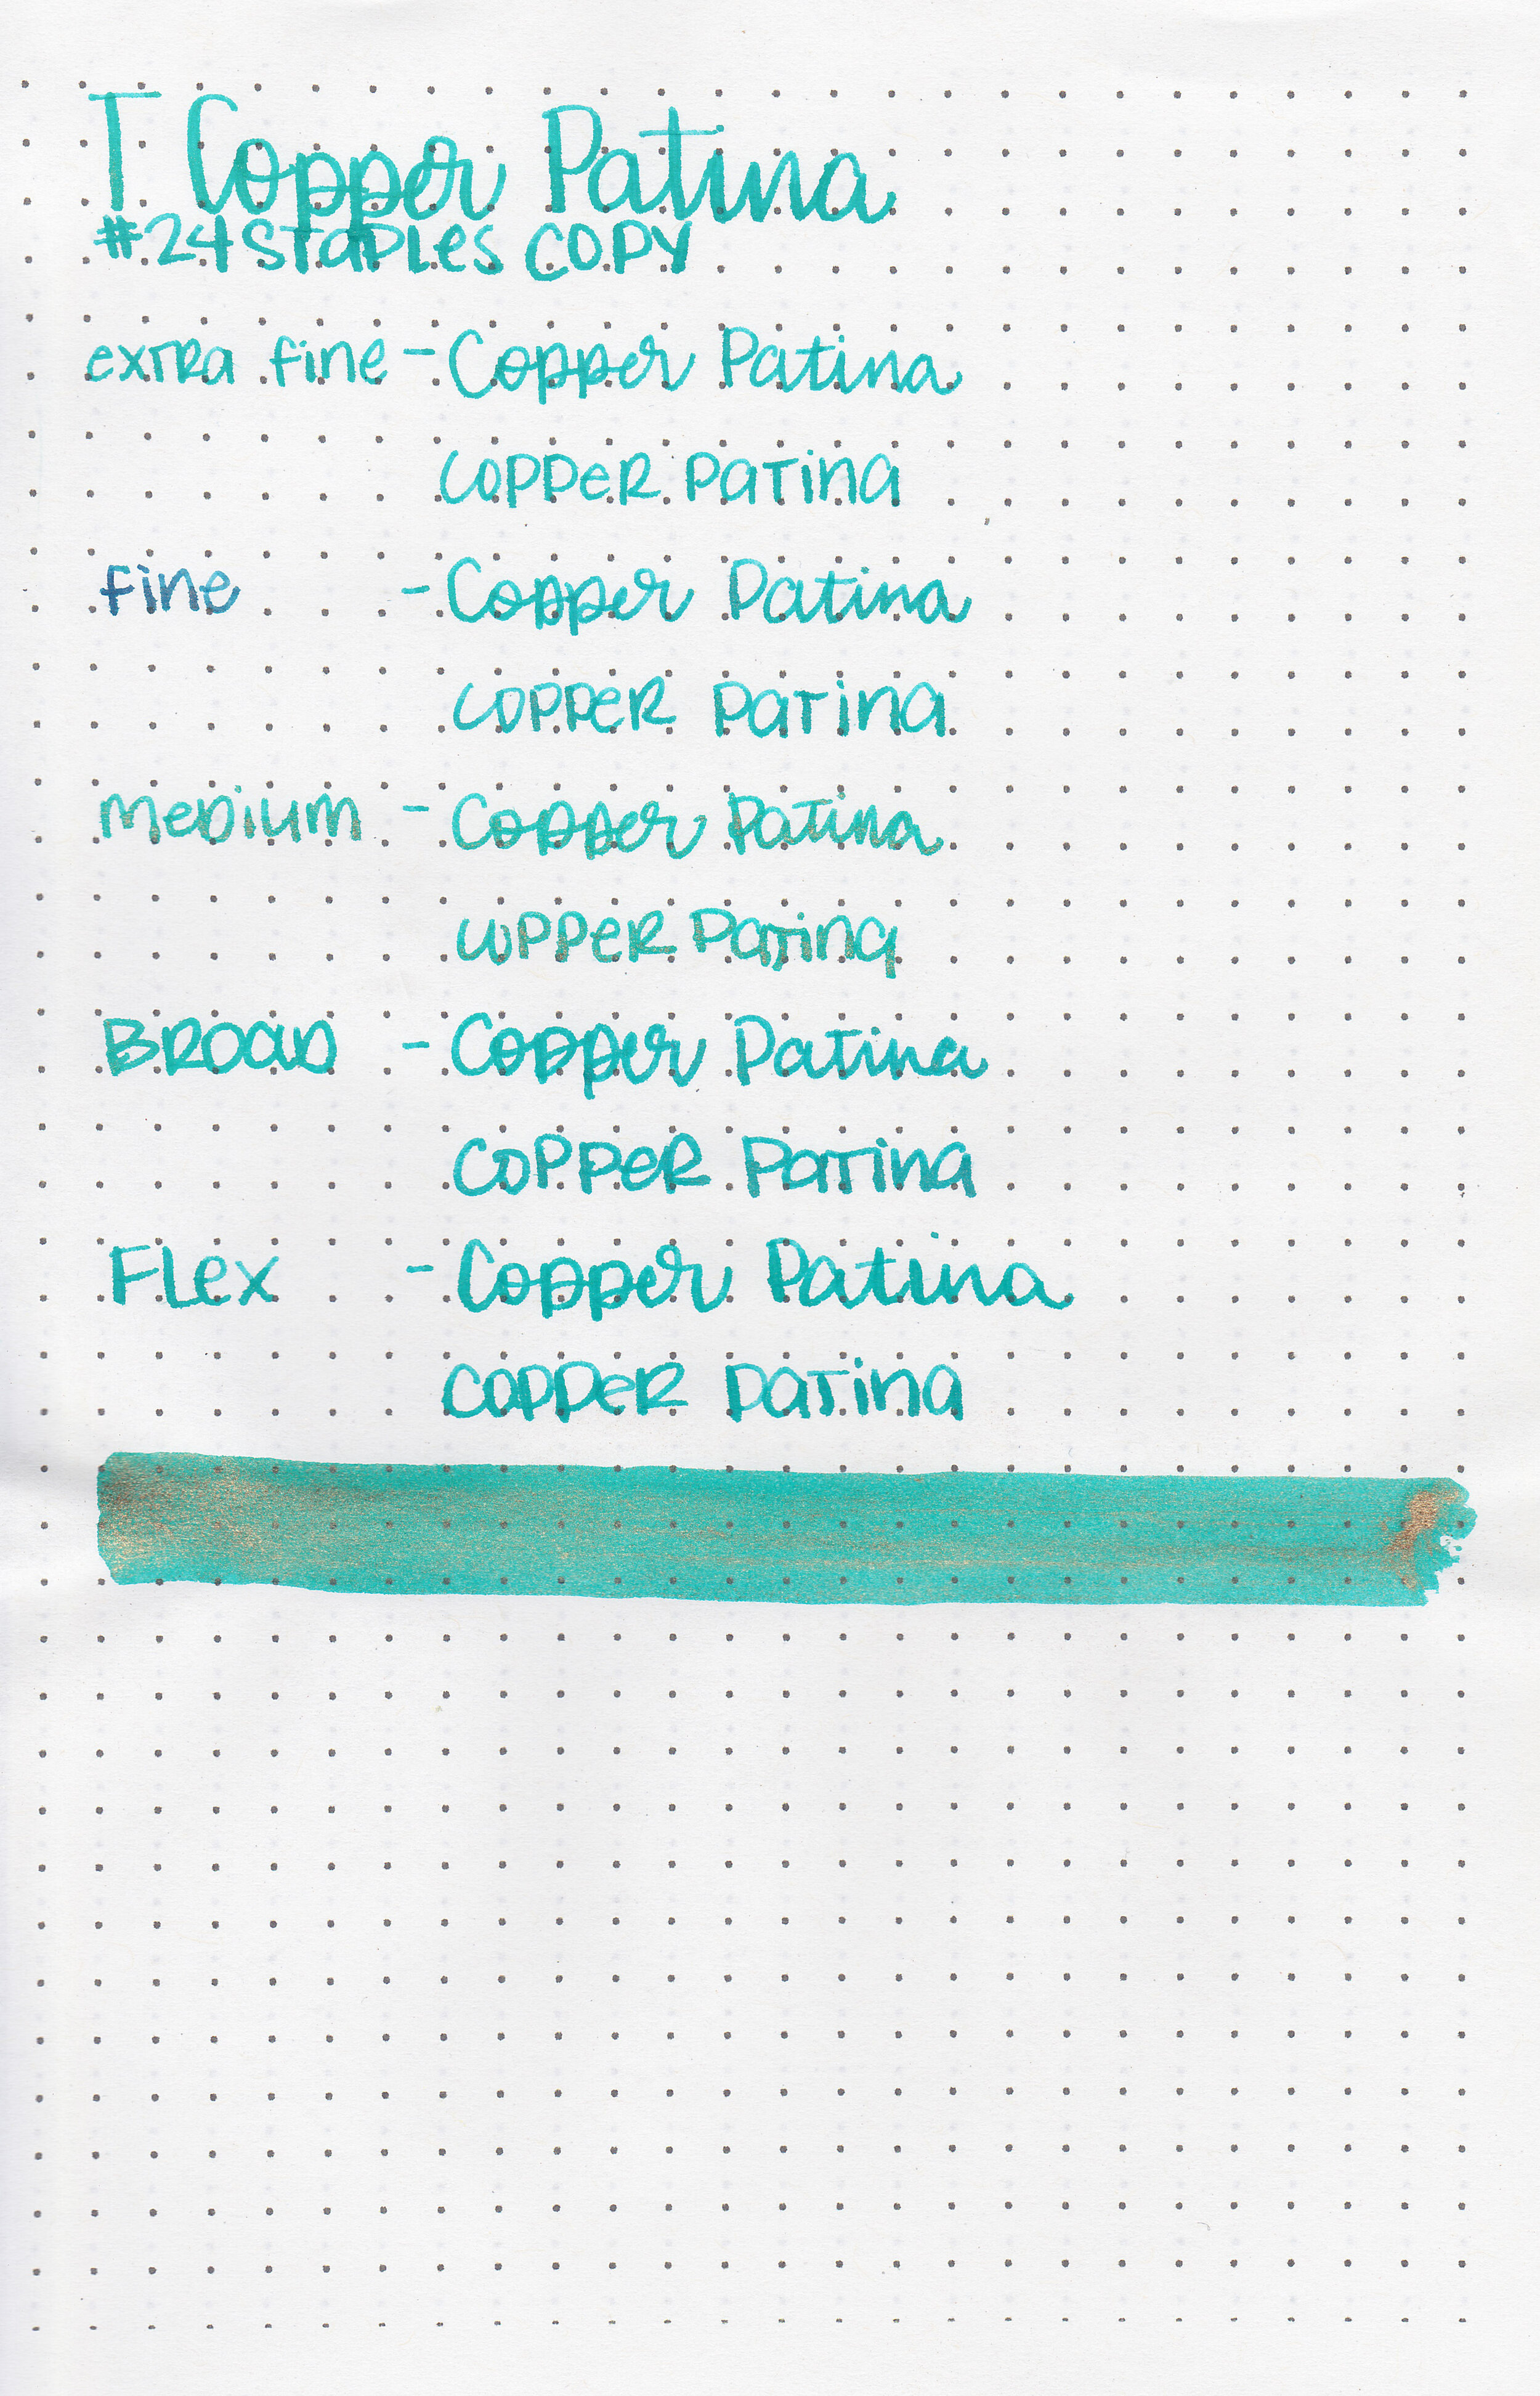 T Copper Patina
#24 STAPLES COPY
extra fine - Copper Patina
COPPER PATINA
fine - Copper Patina
COPPER PATINA
Medium - Copper Patina
COPPER PATINA
BROAD - Copper Patina
COPPER PATINA
FLex - Copper Patina
COPPER PATINA